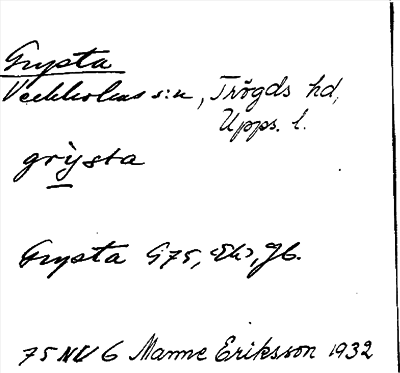 Grysta
Veckholms s:n, Trögds hd,
Upps. l.
grỳsta
Grysta G75, Ek, Jb.
75 NV 6 Manne Eriksson 1932